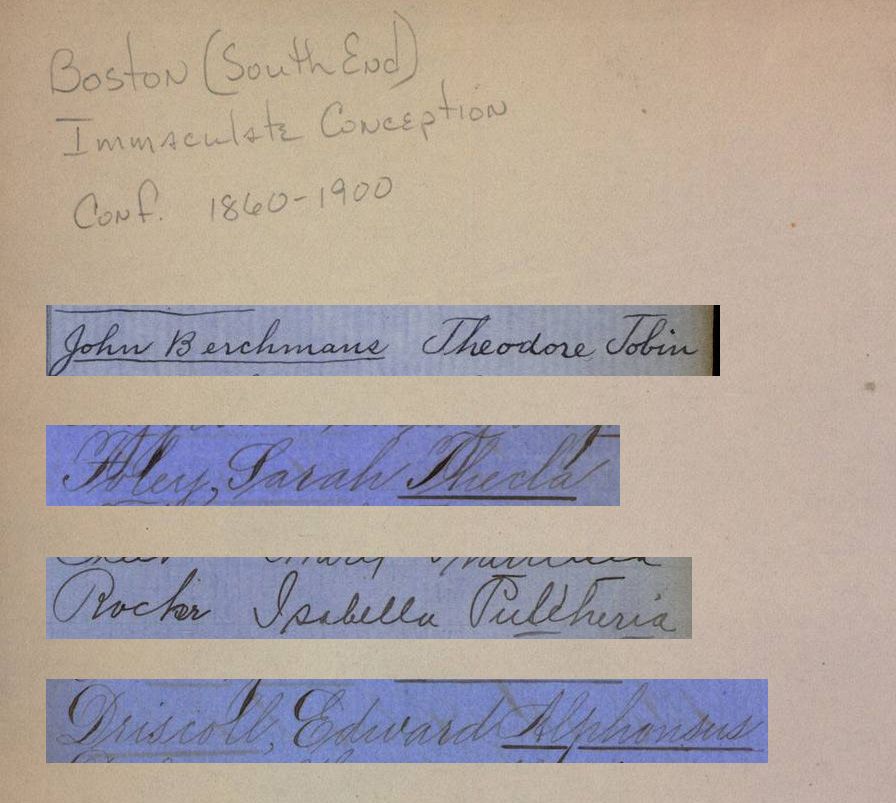 Boston (South End)
Immaculate Conception
Conf. 1860-1900
John Berchmans Theodore Tobin
Foley, Sarah Thecla
Rocker Isabella Pulcheria
Driscoll, Edward Alphonsus